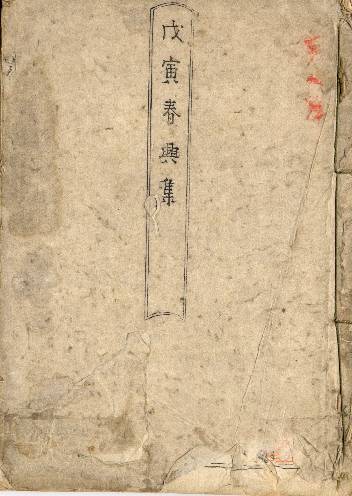 戊寅春興集